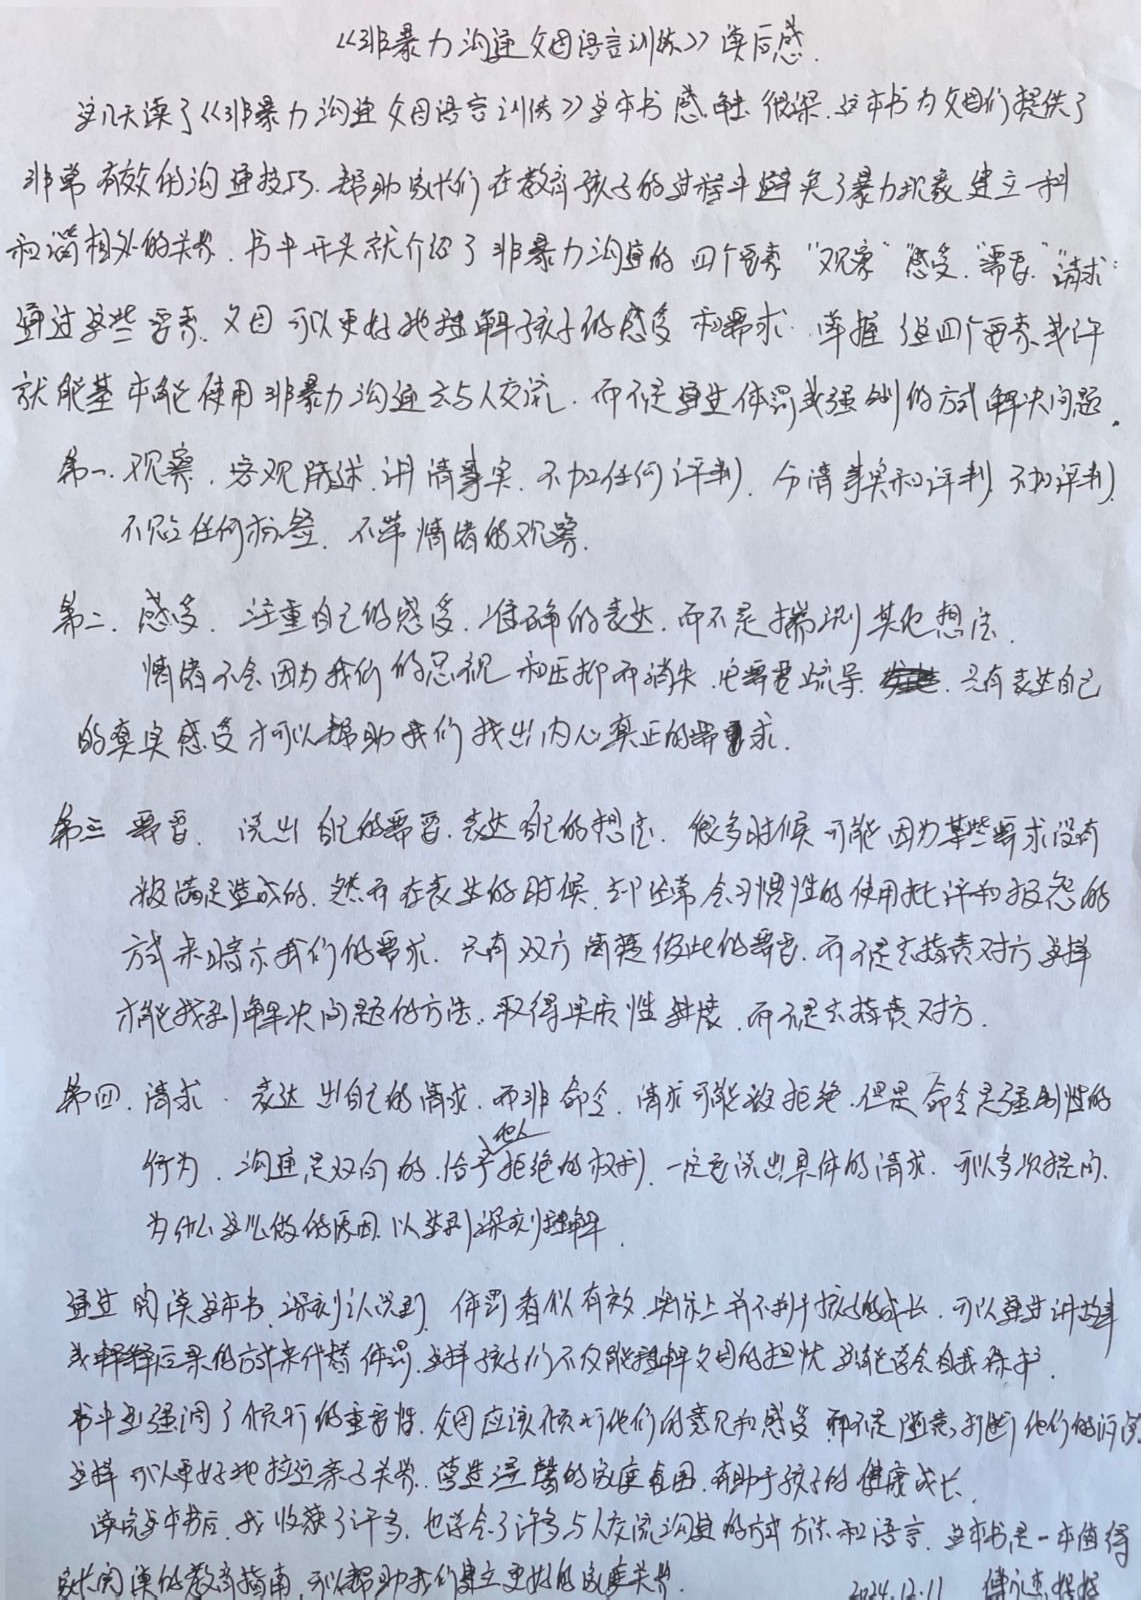 《非暴力沟通父母语言训练》读后感.
这几天读了《非暴力沟通父母语言训练》这本书感触很深.这本书为父母们提供了
非常有效的沟通技巧.帮助家长们在教育孩子的过程中避免了暴力现象建立一种
和谐相处的关系.书中开头就介绍了非暴力沟通的四个要素"观察""感受""需要""请求"
通过这些要素.父母可以更好地理解孩子的感受和需求.掌握了这四个要素或许
就能基本能使用非暴力沟通去与人交流.而不是通过体罚或强制的方式解决问题.
第一.观察.客观陈述.讲清事实.不加任何评判.分清事实和评判.不加评判.
不贴任何标签.不带情绪的观察.
第二.感受.注重自己的感受.准确的表达.而不是揣测其他想法.
情绪不会因为我们的忽视和压抑而消失.它需要疏导.只有表达自己
的真实感受才可以帮助我们找出内心真正的需求.
第三需要.说出自己的需要.表达自己的想法.很多时候可能因为某些要求没有
被满足造成的.然而在表达的时候.却经常会习惯性的使用批评和报怨的
方式来暗示我们的需求.只有双方清楚彼此的需要.而不是去指责对方这样
才能找到解决问题的方法.取得实质性进展.而不是去指责对方.
第四.请求.表达出自己的请求.而非命令.请求可能被拒绝.但是命令是强制性的
行为.沟通是双向的.给予他人拒绝的权利.一定要说出具体的请求.可以多次提问.
为什么这么做的原因.以达到深刻理解.
通过阅读这本书.深刻认识到.体罚看似有效.实际上并不利于孩子的成长.可以通过讲故事
或解释后果的方式来代替体罚.这样孩子们不仅能理解父母的担忧更能学会自我保护.
书中更强调了倾听的重要性.父母应该倾听他们的意见和感受而不是随意打断他们的
这样可以更好地拉近亲子关系.营造温馨的家庭氛围.有助于孩子的健康成长.
读完这本书后.我收获了许多.也学会了许多与人交流沟通的方式方法和语言.这本书是一本值得
家长阅读的教育指南.可以帮助我们建立更好的家庭关系.
2024.12.11